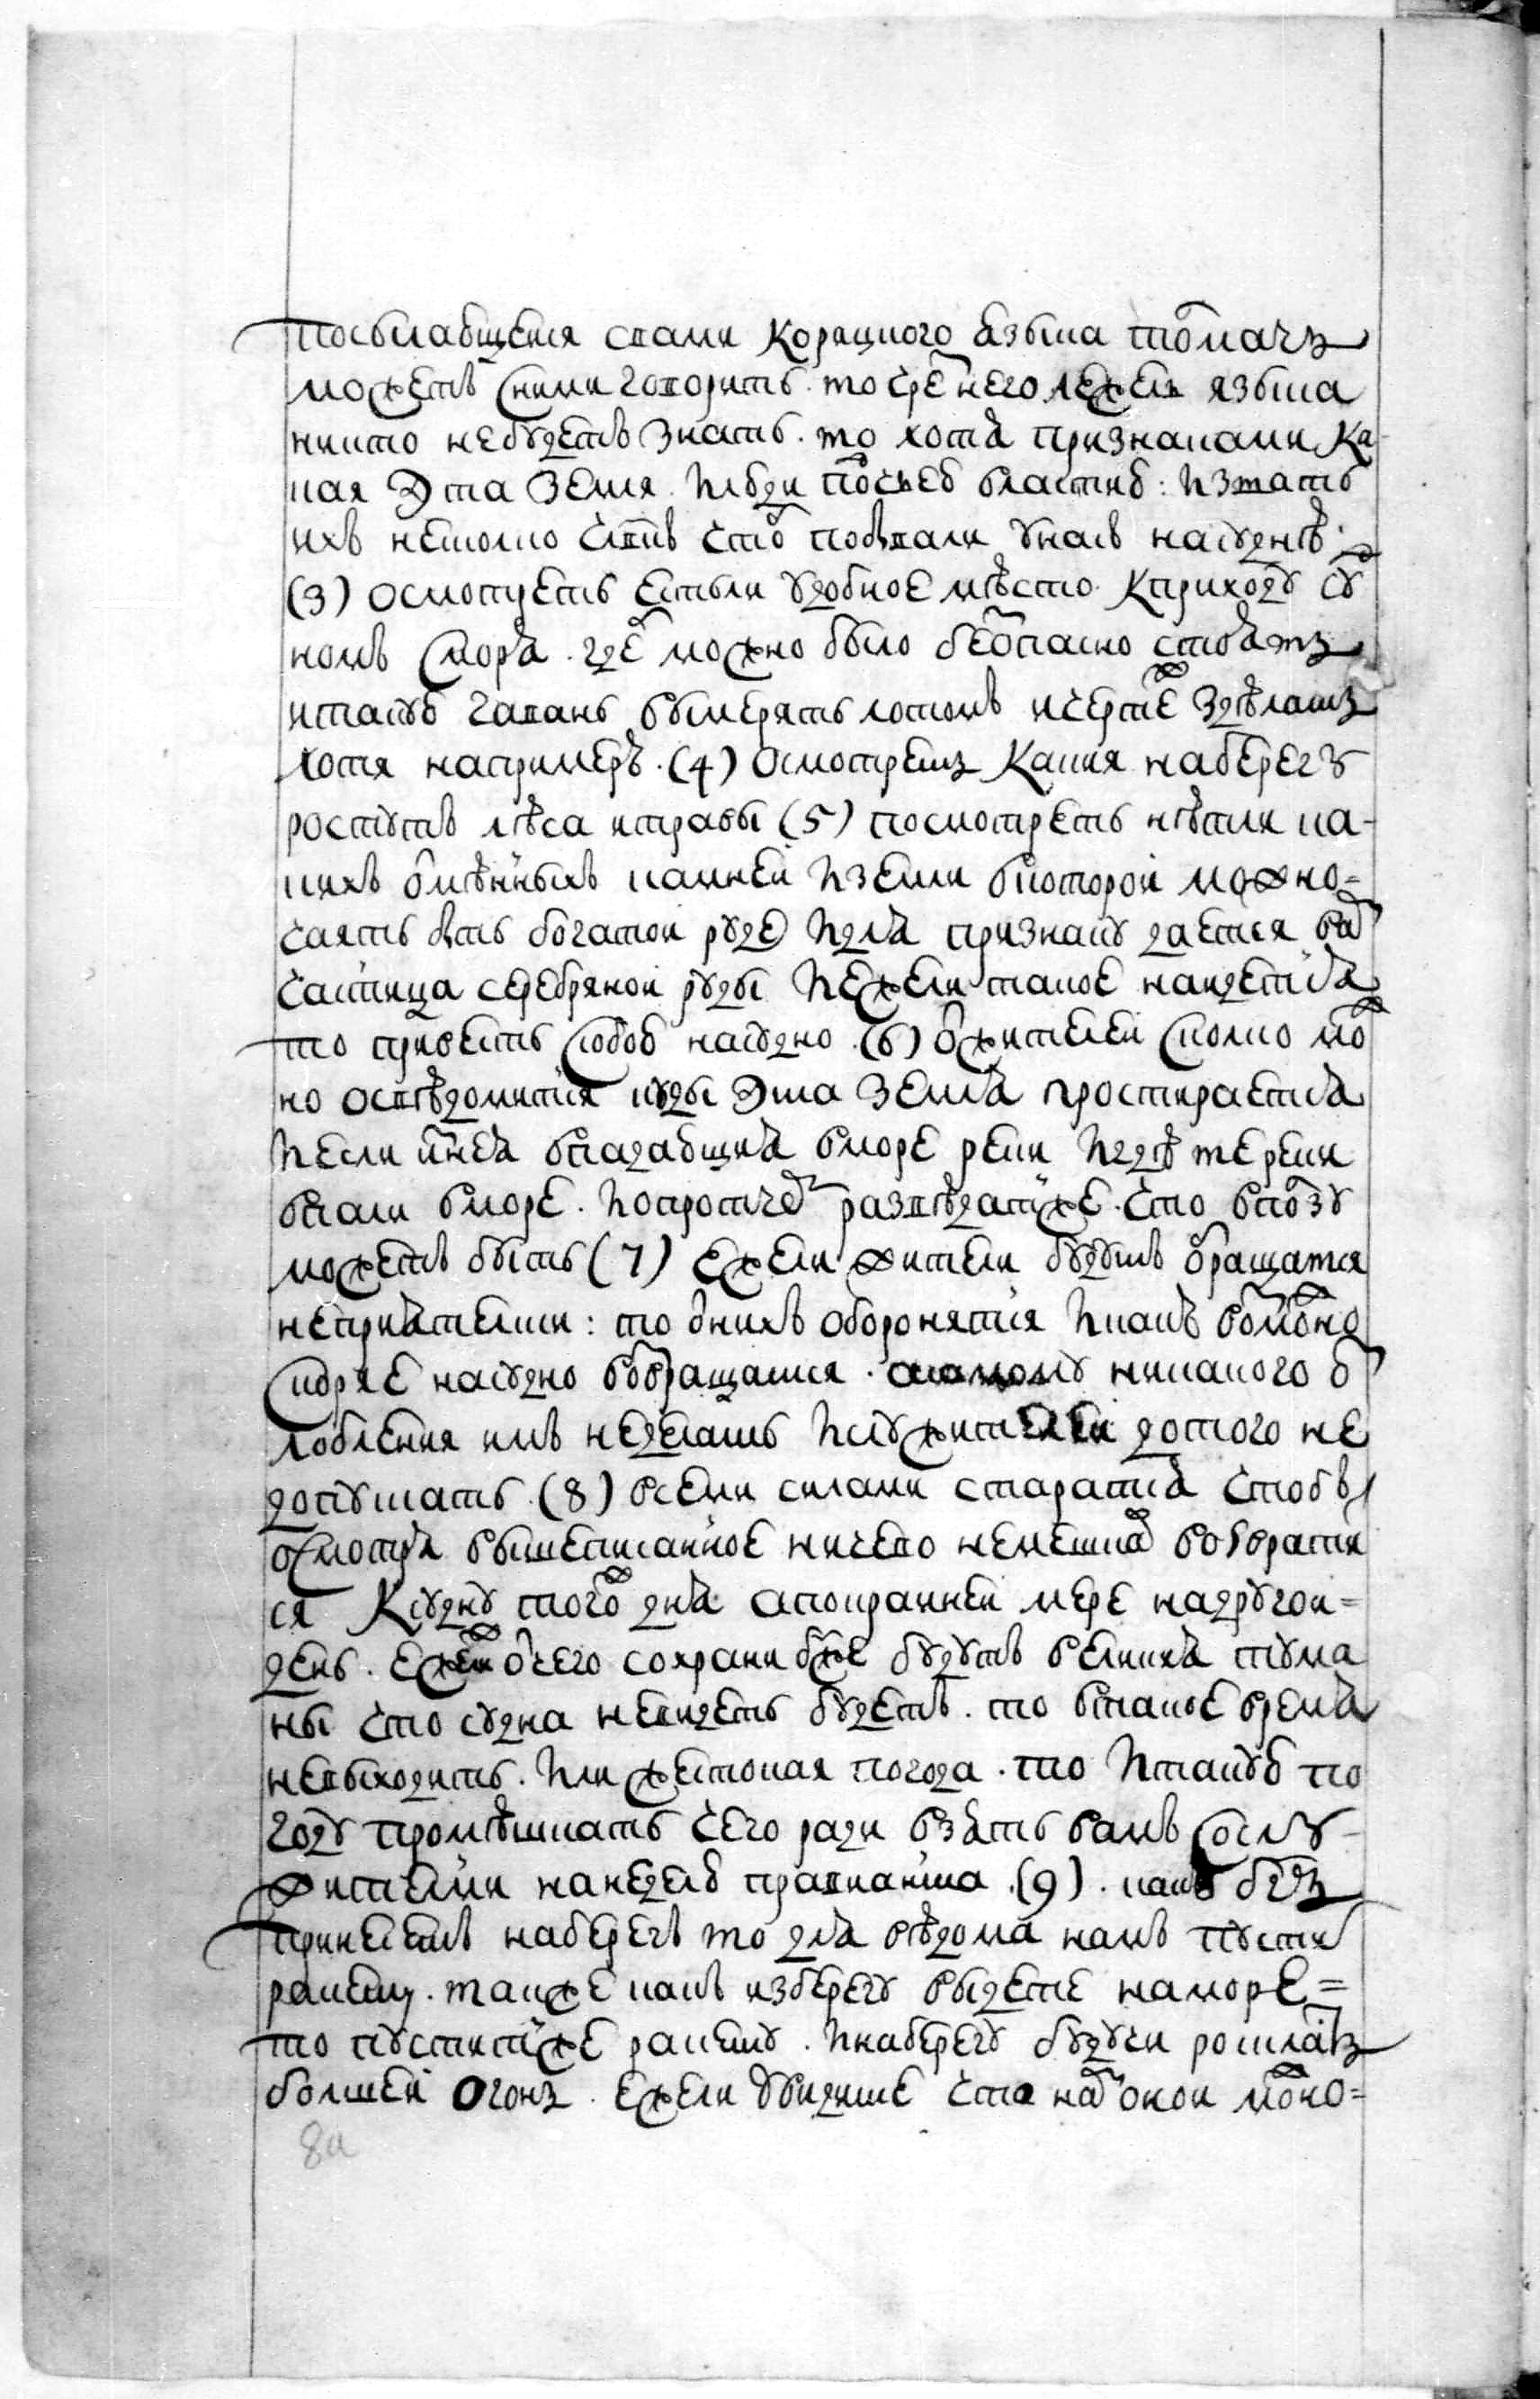 посылающейся свами корацкого языка толмачь
можетъ сними говорить. то чрез него ежели языка
никто небудетъ знать. то хотя признаками ка-
кая эта земля. и люди подчьею властию: и звать
ихъ несколко члвкъ чтоб побывали унасъ насуднѣ.
(3) осмотреть естьли удобное мѣсто кприходу суд
номъ сморя. где можно было безопасно стоять
итакую гавань вымерять лотомъ ичертеж здѣлать
хотя напримеръ. (4) осмотреть какия наберегу
ростутъ лѣса итравы (5) посмотреть нѣтли ка-
кихъ отмѣнныхъ камней изземли вкоторой можно=
чаять быть богатой руде идля признаку дается вам
частица серебряной руды иежели такое найдется
то привесть ссобою насудно. (6) ожителей сколко мож
но освѣдомится куды эта земля простирается
иесли изнея впадающия вморе реки игдѣ те реки
впали вморе. ипопротчем развѣдатже. что вползу
можетъ быть (7) ежели жители будутъ обращатся
неприятелски: то отнихъ оборонятся икакъ возможно
скоряе насудно возвращатся. асамому никакого оз
лобления имъ неделать ислужителей дотого не
допускать. (8) всеми силами старатся чтобъ
осмотря вышеписанное ничево немешкав возвратит
ся ксудну тогож дня апокрайней мере надругой=
день. ежели отчего сохрани бже будутъ великия тума
ны что судна невидеть будетъ. то втакое время
невыходить. или жестокая погода. то итакую по
году промѣшкать чего ради взять вамъ сослу-
жителми нанеделю правианта. (9). какъ богъ
принесетъ наберегъ то для вѣдома намъ пустит
ракету. также какъ изберегу выдете наморе=
то пуститже ракету. инаберегу будучи росклать
болшей огонь. ежели увидите что надокой можно=
8а